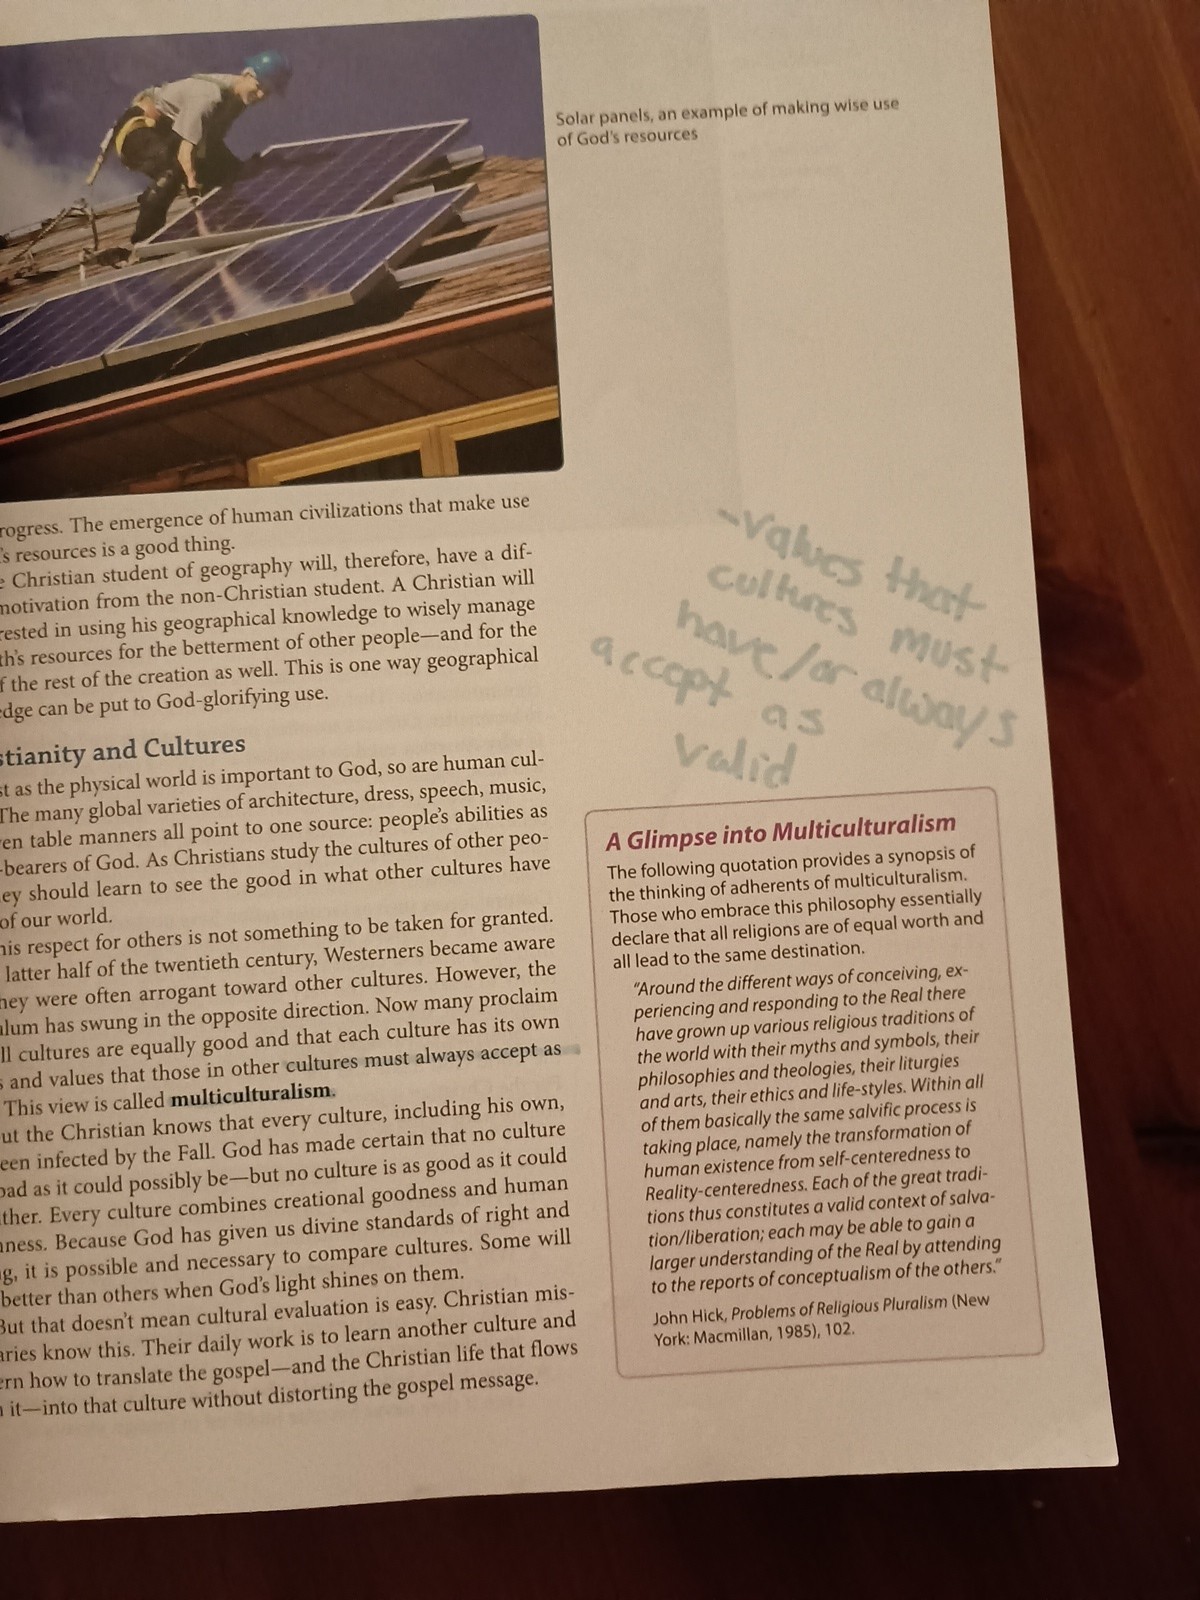 Solar panels, an example of making wise use
of God's resources
rogress. The emergence of human civilizations that make use
's resources is a good thing.
e Christian student of geography will, therefore, have a dif-
motivation from the non-Christian student. A Christian will
rested in using his geographical knowledge to wisely manage
th's resources for the betterment of other people—and for the
f the rest of the creation as well. This is one way geographical
edge can be put to God-glorifying use.
-values that
cultures must
have/or always
accept as
valid
stianity and Cultures
st as the physical world is important to God, so are human cul-
The many global varieties of architecture, dress, speech, music,
en table manners all point to one source: people's abilities as
-bearers of God. As Christians study the cultures of other peo-
ey should learn to see the good in what other cultures have
of our world.
his respect for others is not something to be taken for granted.
latter half of the twentieth century, Westerners became aware
hey were often arrogant toward other cultures. However, the
ulum has swung in the opposite direction. Now many proclaim
ll cultures are equally good and that each culture has its own
s and values that those in other cultures must always accept as
This view is called multiculturalism.
ut the Christian knows that every culture, including his own,
een infected by the Fall. God has made certain that no culture
bad as it could possibly be—but no culture is as good as it could
ther. Every culture combines creational goodness and human
nness. Because God has given us divine standards of right and
g, it is possible and necessary to compare cultures. Some will
better than others when God's light shines on them.
But that doesn't mean cultural evaluation is easy. Christian mis-
aries know this. Their daily work is to learn another culture and
ern how to translate the gospel—and the Christian life that flows
it—into that culture without distorting the gospel message.
A Glimpse into Multiculturalism
The following quotation provides a synopsis of
the thinking of adherents of multiculturalism.
Those who embrace this philosophy essentially
declare that all religions are of equal worth and
all lead to the same destination.
"Around the different ways of conceiving, ex-
periencing and responding to the Real there
have grown up various religious traditions of
the world with their myths and symbols, their
philosophies and theologies, their liturgies
and arts, their ethics and life-styles. Within all
of them basically the same salvific process is
taking place, namely the transformation of
human existence from self-centeredness to
Reality-centeredness. Each of the great tradi-
tions thus constitutes a valid context of salva-
tion/liberation; each may be able to gain a
larger understanding of the Real by attending
to the reports of conceptualism of the others."
John Hick, Problems of Religious Pluralism (New
York: Macmillan, 1985), 102.